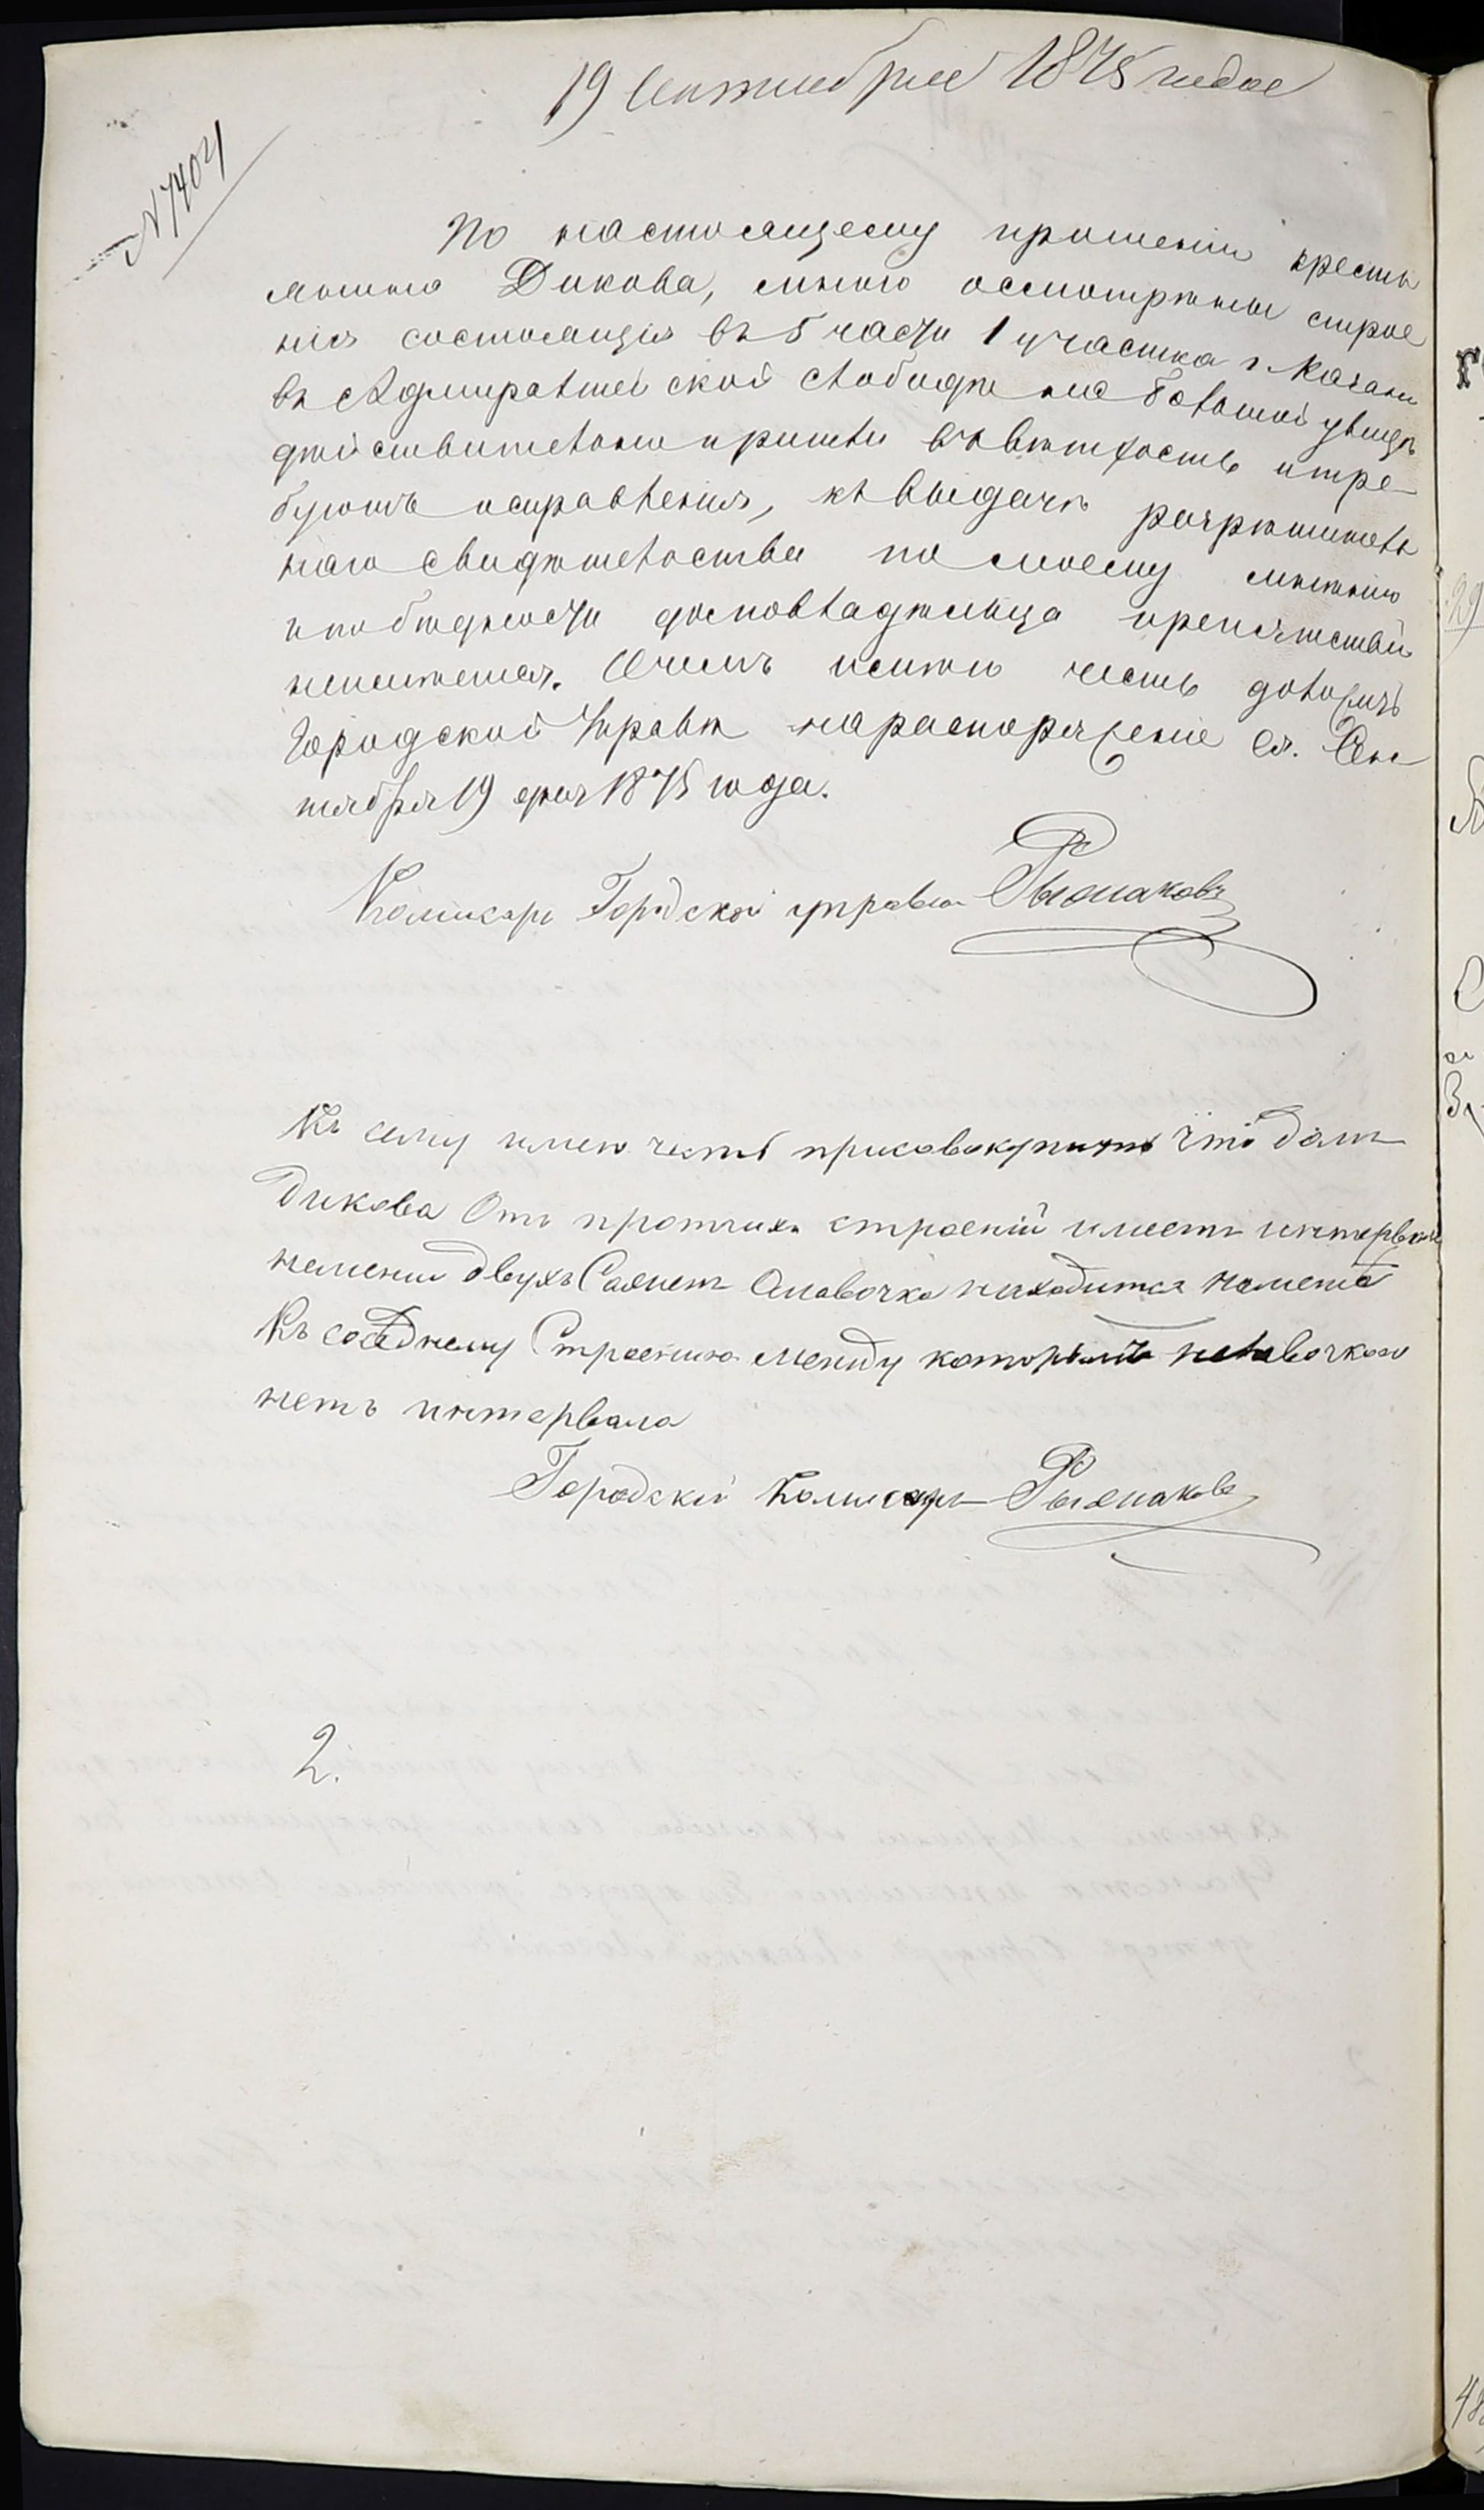 19 Сентября 1875 года
№ 7404
По настоящему прошению кресть
янина Дикова, мною осмотрены строе
нія состоящія въ 5 части 1 участка г. Казани
въ Адмиралтейской слободѣ на большой улицѣ
дѣйствительно пришли въ вѣтхость и тре
буютъ исправленія, къ выдачѣ разрѣшитель
наго свидѣтельства по моему мнѣнію
и по бѣдности домовладѣльца препятствій
неимѣется. О чемъ имѣю честь доложить
Городской Управѣ на распоряженіе Ея. Сен
тября 19 дня 1875 года.
Комисаръ Городской управы
Къ сему имею честь присовокупить что домъ
Дикова Отъ протчихъ строеній имеетъ интервалъ
неменѣе двухъ Саженъ Алавочка находится
Къ соседнему Строенію между которымъ илавочкою
нетъ интервала
Городскій Комисаръ
2.